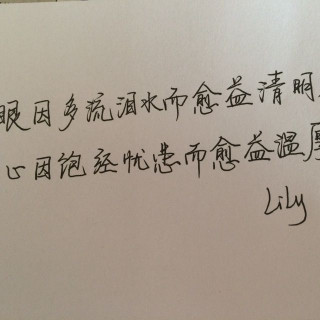 眼因多流泪水而愈益清明,
心因饱经忧患而愈益温厚
Lily